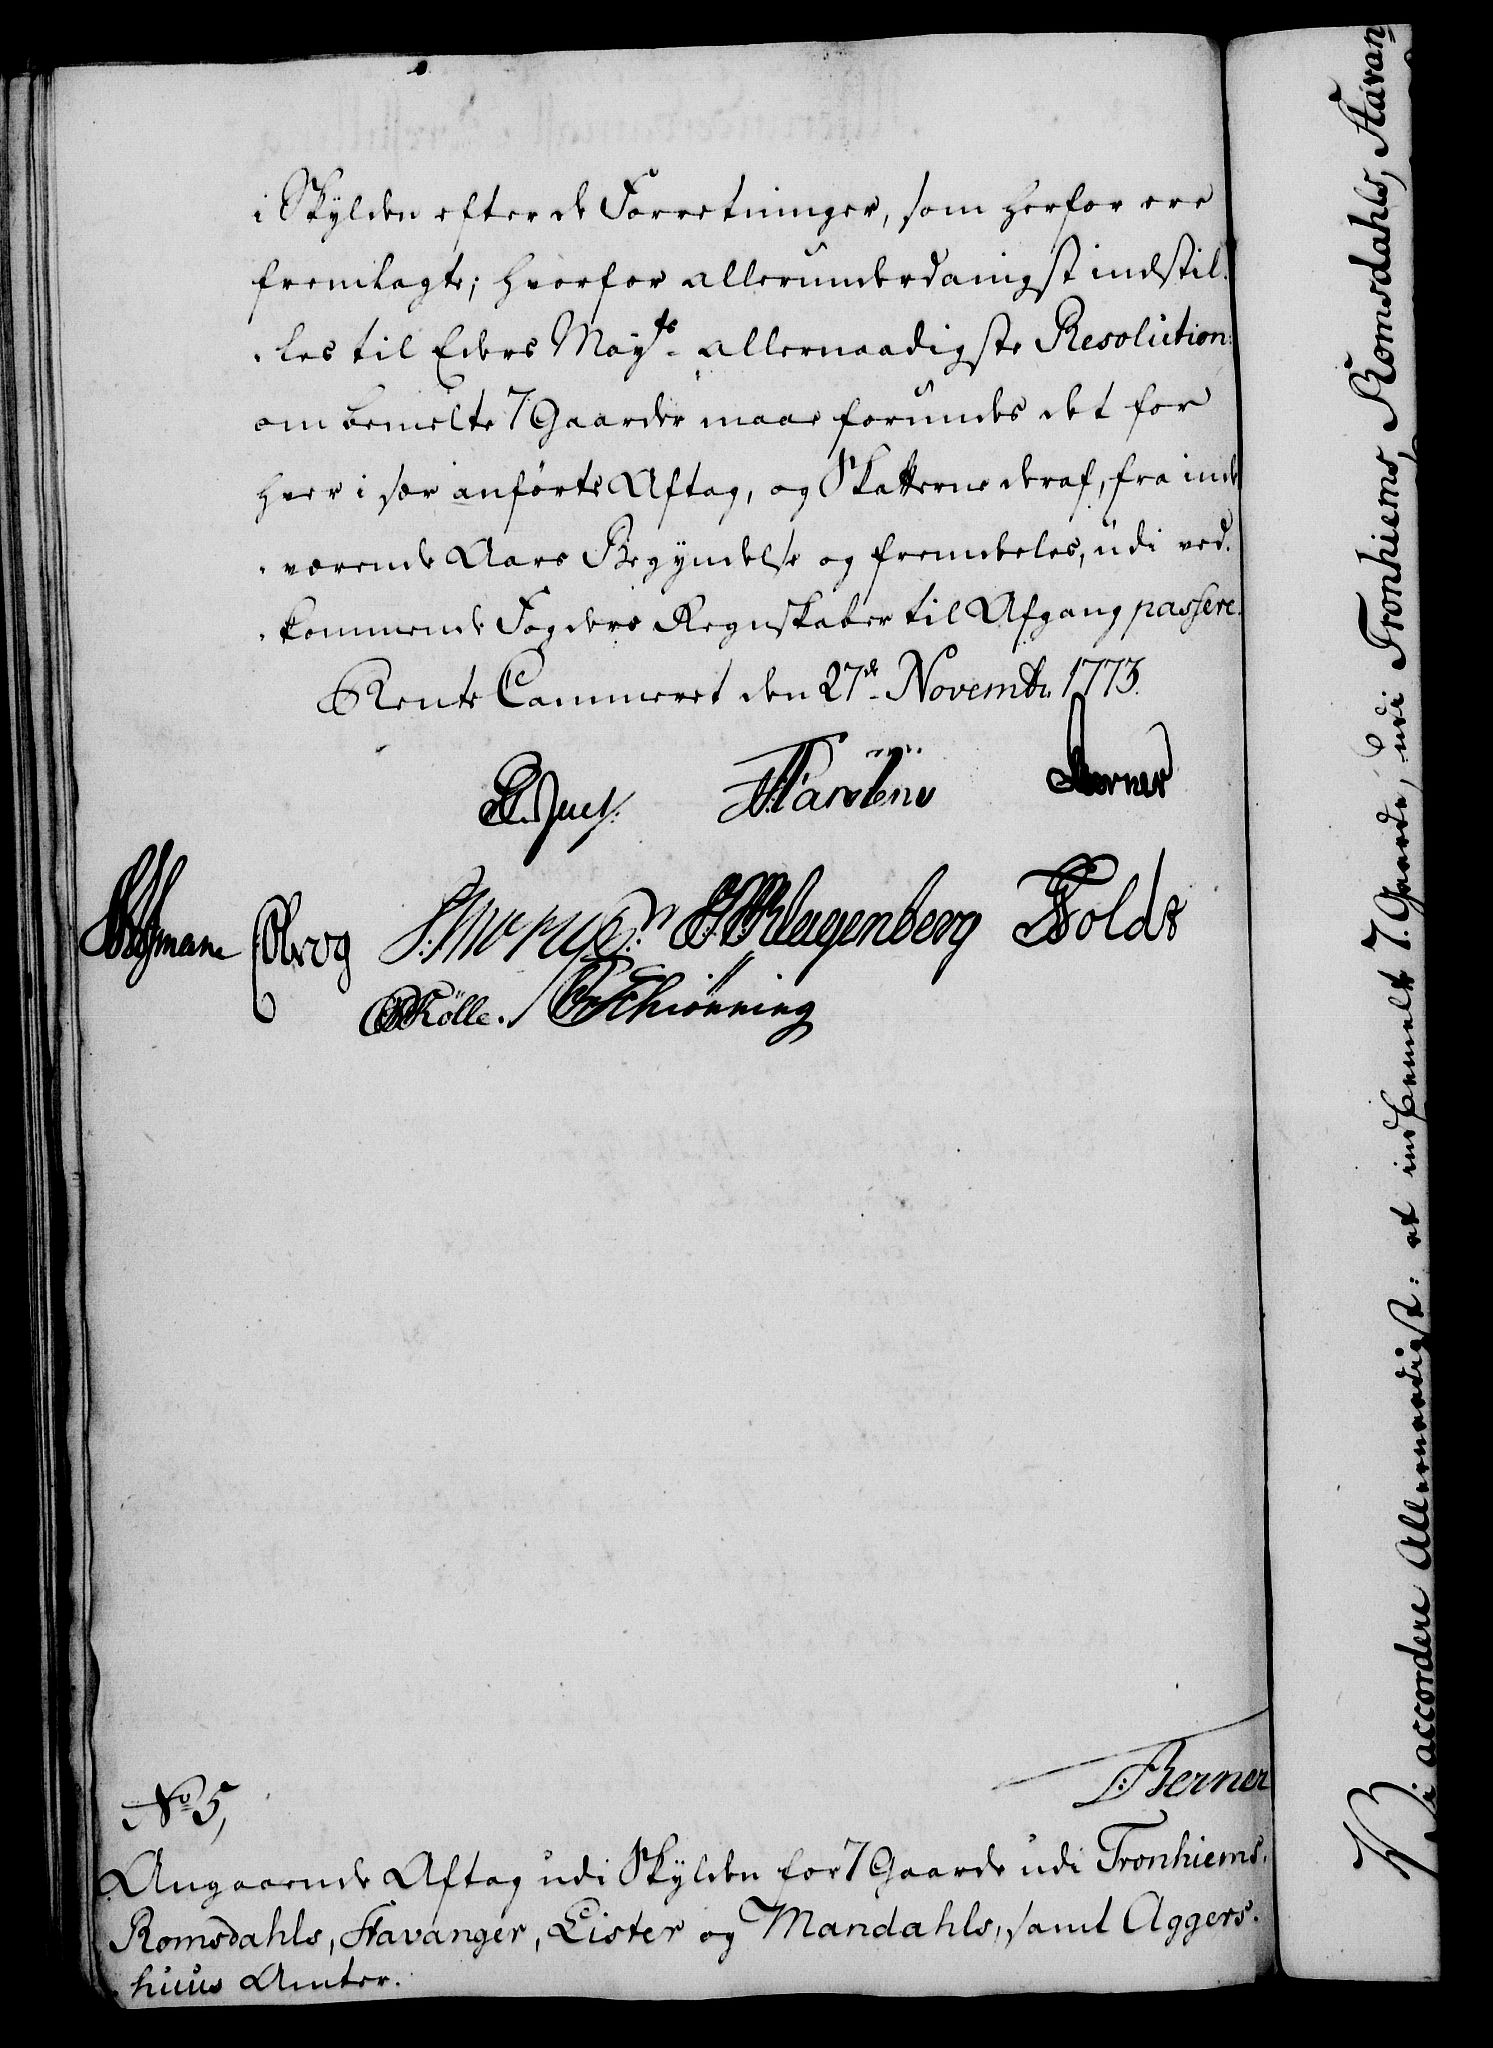 i Skylden efter de Forretninger, som herfor ere
fremlagte; hvorfor allerunderdanigst indstil-
-les til Eders Mayts. allernaadigste Resolution:
om bemelte 7 Gaarder maae forundes det for
hver i sær anførte Aftag, og Skatterne deraf, fra inde
-værende Aars Begyndelse og fremdeles, udi ved-
-kommende Fogders Regnskaber til Afgang passere.
Rente Cammeret den 27de Novembr. 1773.
Juel. Berner
Klagenberg Holdt
Rølle. Schiönning
L: Berner
No 5,
Angaaende Aftag udi Skylden for 7 Gaarde udi Tronhiems,
Romsdahls, Stavanger, Lister og Mandahls, samt Aggers-
huus Amter.
Vi accordere Allernaadigst: at indbemelt 7. Gaarde, udi Tronhiems, Romsdahls, Stavan-